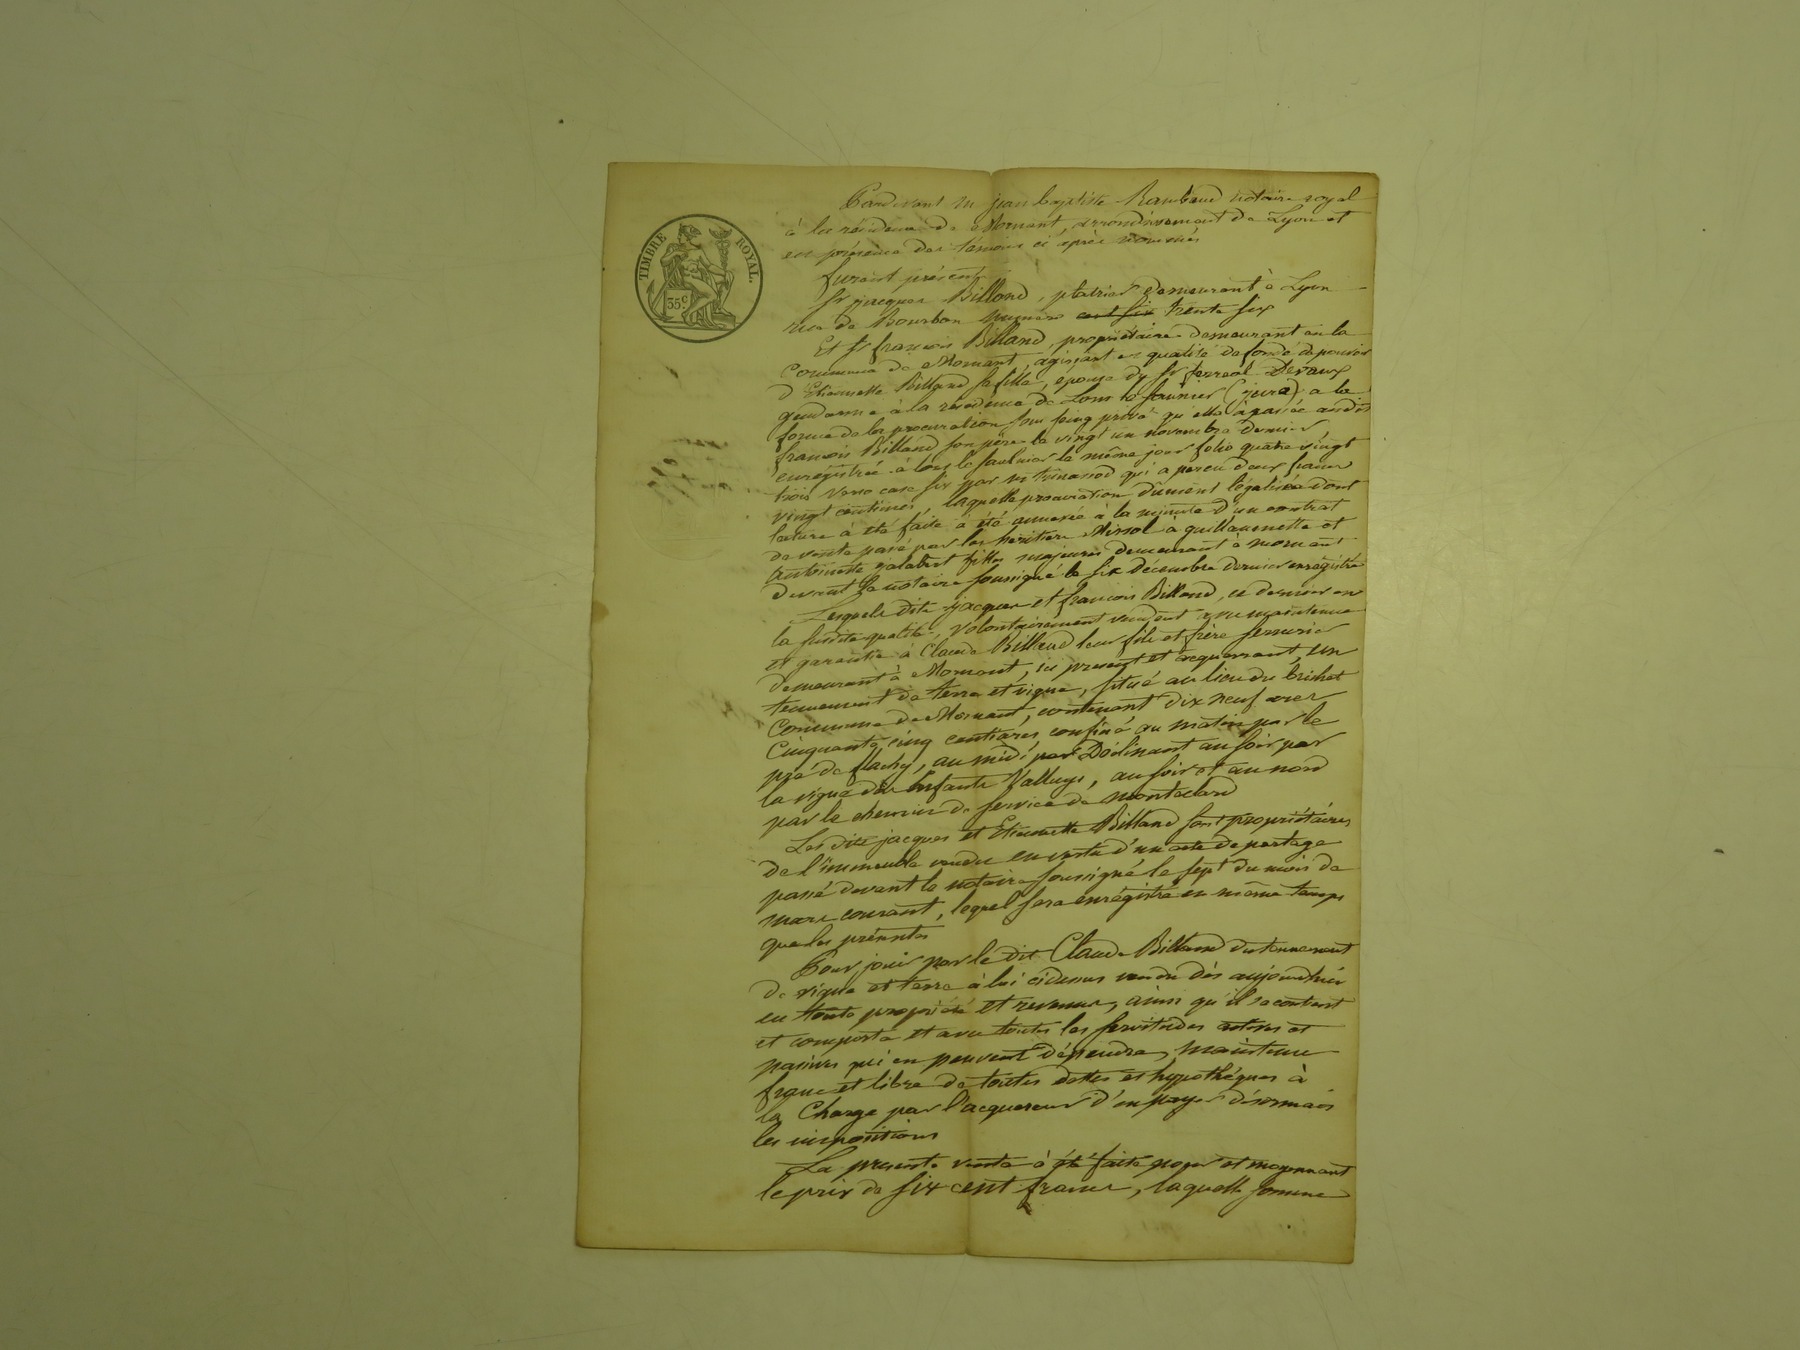 TIMBRE ROYAL.
35c
Pardevant Me jean baptiste Rambaud notaire royal
à la résidence de Mornant, arrondissement de Lyon et
en présence des témoins ci après nommés
furent présents
Sr jacques Billand, platrier demeurant à Lyon
rue de Bourbon numéro cent six trente six
Et Sr françois Billand, propriétaire demeurant en la
Commune de Mornant, agissant en qualité de fondé de pouvoir
d'Etiennette Billand sa fille, épouse du Sr ferreol Devaux
gendarme à la résidence de Lons le Saunier (jura) a la
forme de la procuration sous seing privé qu'elle à passée audit
françois Billand son père le vingt un novembre dernier,
enregistrée à Lons le Saulnier le même jour folio quatre vingt
trois verso case six par Me qui a perçu deux francs
vingt centimes, laquelle procuration dument légalisée dont
lecture à été faite à été annexée à la minute d'un contrat
de vente passé par les héritiers Missol à guillaumette et
antoinette galabert filles majeures demeurant à mornant
devant le notaire soussigné le six décembre dernier enregistré
Lesquels dits jacques et françois Billand, ce dernier en
la susdite qualité, volontairement vendent avec maintenue
et garantie à Claude Billand leur fils et frère serrurier
demeurant à Mornant, ici présent et acquerrant, un
tennement de terre et vigne, situé au lieu du brichet
Commune de Mornant, contenant dix neuf ares
Cinquante cinq centiares confiné au matin par le
pré de flachy, au midi par Dodinant au soir par
la vigne des Enfants Valluys, au soir et au nord
par le chemin de service de montaclard
Les dits jacques et Etiennette Billand sont propriétaires
de l'immeuble vendu en vertu d'un acte de partage
passé devant le notaire soussigné le sept du mois de
mars courant, lequel sera enregistré en même temps
que les présentes
Pour jouir par le dit Claude Billand du tennement
de vigne et terre à lui cidessus vendu dès aujourd'hui
en toute propriété et revenus, ainsi qu'il se contient
et comporte et avec toutes les servitudes actives et
passives qui en peuvent dépendre, maintenu
franc et libre de toutes dettes et hypothèques à
la Charge par l'acquereur d'en payer désormais
les impositions
La présente vente à été faite pour et moyennant
le prix de six cent francs, laquelle somme